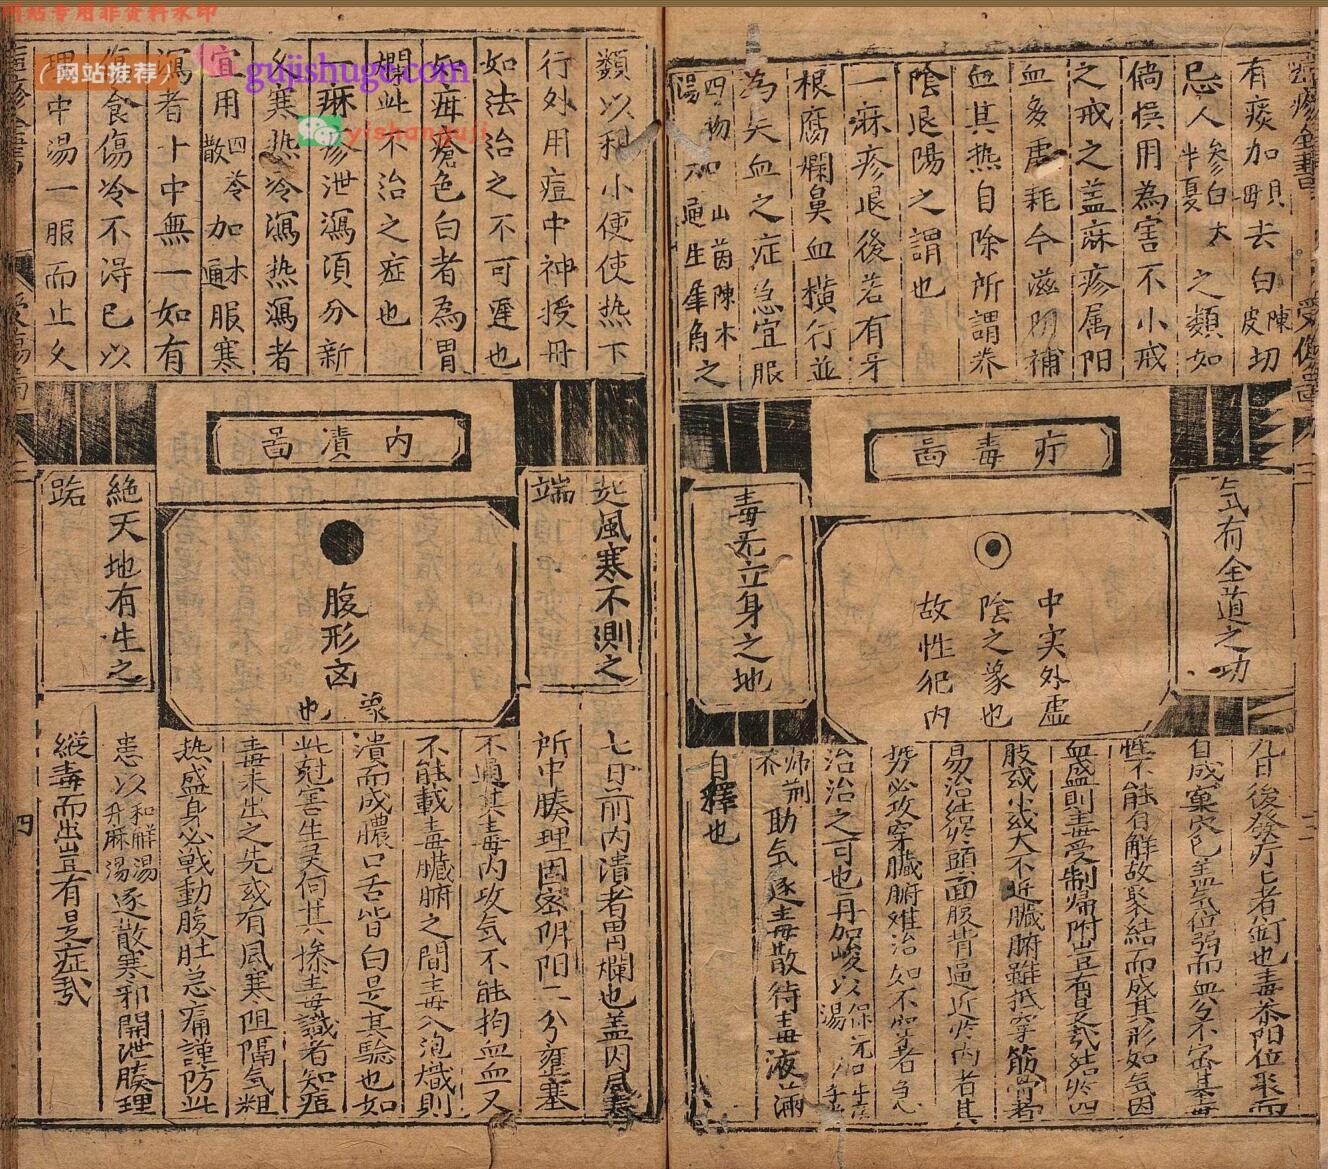 网站专用非资料水印
網站推荐
gujishuge.com
yishanguji
有痰加貝母去白陳皮切
忌人參白朮半夏之類如
倘悮用為害不小戒
之戒之盖麻疹属阳
血多虚耗今滋阴補
血其热自除所謂养
陰退陽之謂也
一麻疹退後若有牙
根腐爛鼻血横行並
為失血之症急宜服
四物湯加山茵陳木通生犀角之
類以利小便使热下
行外用痘中神授丹
如法治之不可遲也
如毒瘡色白者為胃
爛此不治之症也
一麻疹泄瀉須分新
久寒热冷瀉热瀉者
宜用四苓散加木通服寒
瀉者十中無一如有
傷食傷冷不得已以
理中湯一服而止久
疔毒啚
炁有全道之功
中实外虚
陰之象也
故性犯内
毒无立身之地
九日後發疔七者
自成窠穴
性不能自解故聚結而成其形如気因
血盛則毒受制歸附豈有是哉結於四
肢或小或大不近臟腑雖抵穿筋骨者
易治結於頭面腹背逼近於内者其
勢必攻穿臟腑难治如不穿者急
治治之可也丹加峻以保元湯
助気逐毒散待毒液滿
自釋也
内潰啚
起風寒不測之
端
腹形凶
象也
絶天地有生之
路
七日前内潰者胃爛也盖因風寒
所中腠理固密阴阳二分壅塞
不通其毒内攻気不能拘血血又
不能載毒臟腑之間毒入泡熾則
潰而成膿口舌皆白是其驗也如
此尅害生灵何其慘毒識者知痘
毒未出之先或有風寒阻隔気粗
热盛身必戦動腹肚急痛謹防此
患以和解湯升麻湯逐散寒邪開泄腠理
縱毒而出豈有是症哉
四